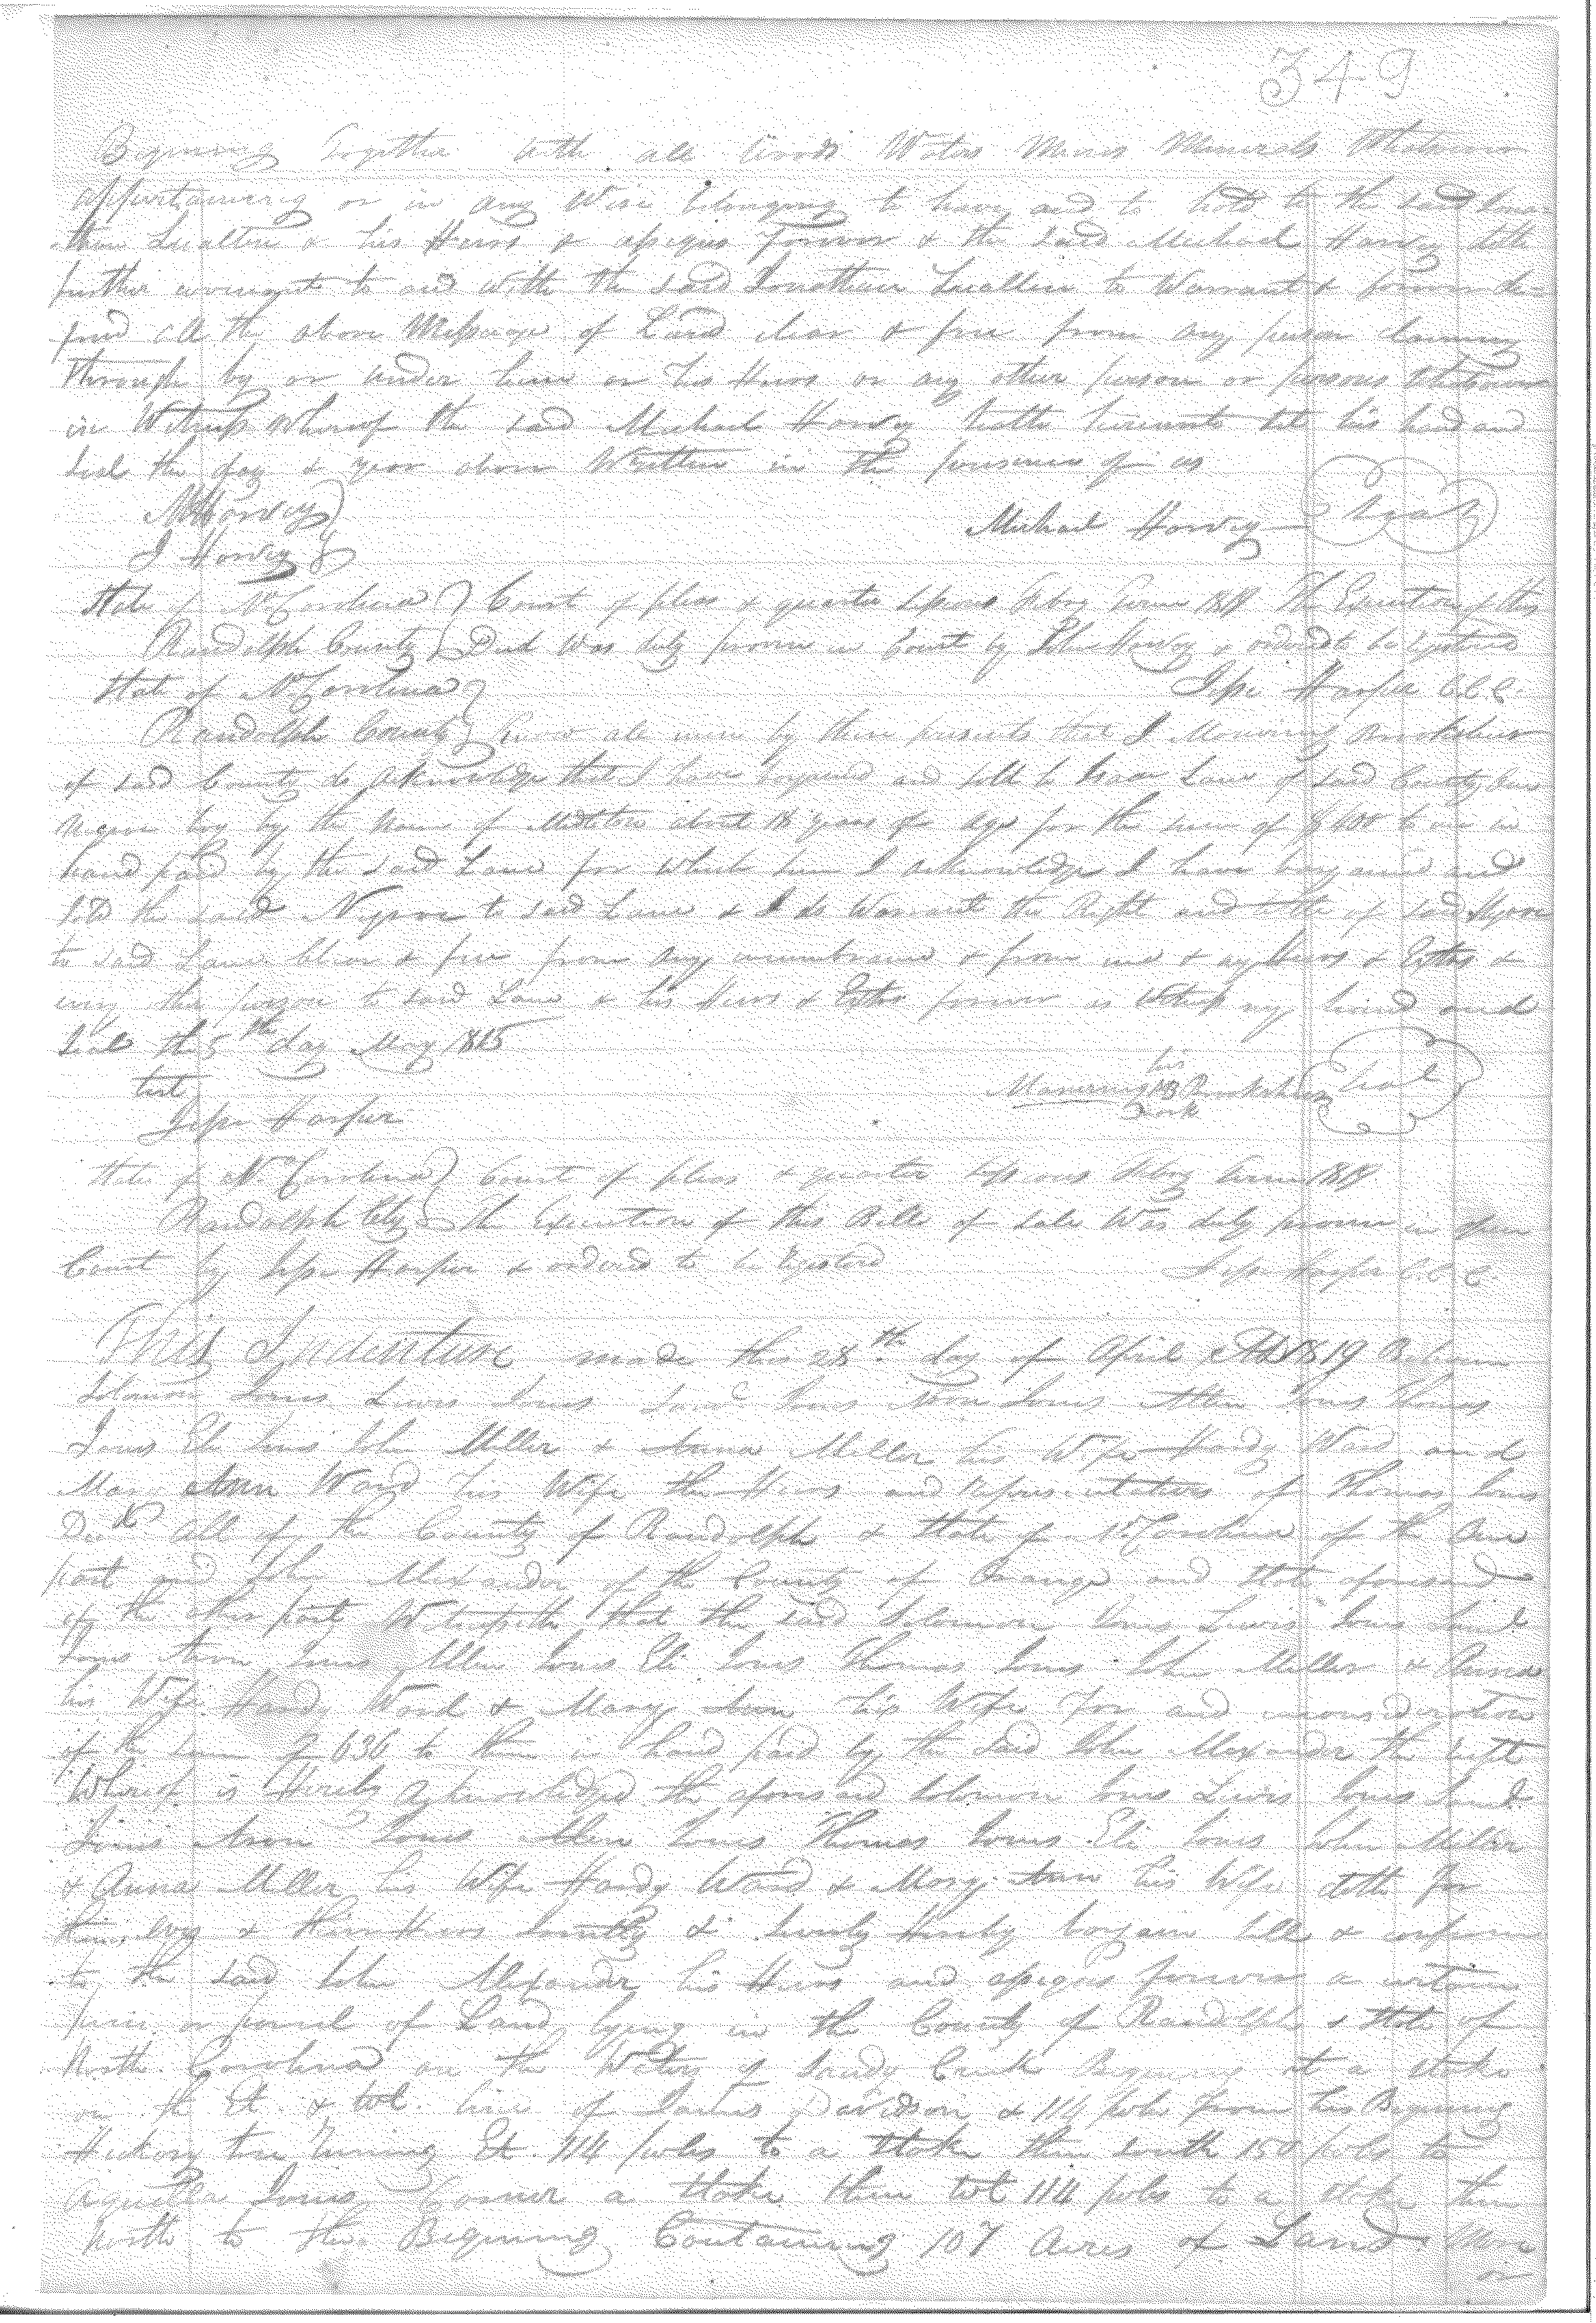 349
Begining Together with all Woods Waters Mines Minerals Whatsoever
appertaining or in any Wise belonging to have and to hold to the said Jona-
than Lualten & his Heirs & assigns forever & the said Michael Harvey doth
further covenant to and with the said Jonathan Lualten to Warrant & forever de-
fend all the above Messuage of Land clear & free from any person claiming
Through by or under him or his Heirs or any other person or persons Whatsoever
in Witness Whereof the said Michael Harvey hath hereunto set his hand and
seal the day & year above Written in the presence of us
Harvey
J Harvey
Michael Harvey Seal
State of No Carolina Court of pleas & quarter sessions Feby Term 1819 The Execution of this
Randolph County Deed was duly proven in Court by Harvey & ordered to be registered
State of No Carolina Jesse Harper C.C.C.
Randolph County Know all men by these presents that I Mannering Brookshire
of said County do acknowledge that I have bargained and sold to Isaac Lane of said County one
Negroe boy by the Name of about 18 years of age for the sum of $400 to me in
hand paid by the said Lane for Which sum I acknowledge I have bargained and
sold the said Negroe to said Lane & I do Warrant the Right and title of said Negroe
to said Lane Clear & free from any incumbrance & from me & my heirs & Extrs &
every other person to said Lane & his Heirs & Extrs forever as Witness my hand and
seal this 5th day May 1815
test
Jesse Harper
Mannering his MB mark Brookshire Seal
State of No Carolina Court of pleas & quarter sessions Feby Term 1819.
Randolph Cty The Execution of this Bill of sale Was duly proven in open
Court by Jesse Harper & ordered to be registerd Jesse Harper C.C.C.
This Indenture made this 28th day of April AD 1819 Between
Solomon Jones Lewis Jones Saml Jones Aron Jones Allen Jones Thomas
Jones Eli Jones John Miller & Anna Miller his Wife Hardy Ward and
Mary Ann Ward his Wife the Heirs and Representatives of Thomas Jones
Decd all of the County of Randolph & State of No Carolina of the One
part and John Alexander of the County of Orange and State aforesaid
of the other part Witnesseth that the said Solomon Jones Lewis Jones Saml
Jones Aron Jones Allen Jones Eli Jones Thomas Jones John Miller & Anna
his Wife Hardy Ward & Mary Ann his Wife For and inconsideration
of the sum of 636 to them in hand paid by the said John Alexander the recpt
Whereof is Hereby acknowledged the aforesaid Solomon Jones Lewis Jones Saml
Jones Aron Jones Allen Jones Thomas Jones Eli Jones John Miller
& Anna Miller his Wife Hardy Ward & Mary Ann his Wife doth for
them selvs & their Heirs Hereby bargain sell & confirm
to the said John Alexander his Heirs and assigns forever a certain
piece or parcel of Land lying in the County of Randolph & State of
North Carolina on the Waters of Sandy Creek Begining at a stake
on the Et. & Wt. line of James Davidson & 114 poles from his Begining
Hickory tree Runing Et. 114 poles to a Stake then south 150 poles to
Aquilla Jones Corner a Stake then Wt 114 poles to a stake then
North to the Begining Containing 107 Acres of Land More
or